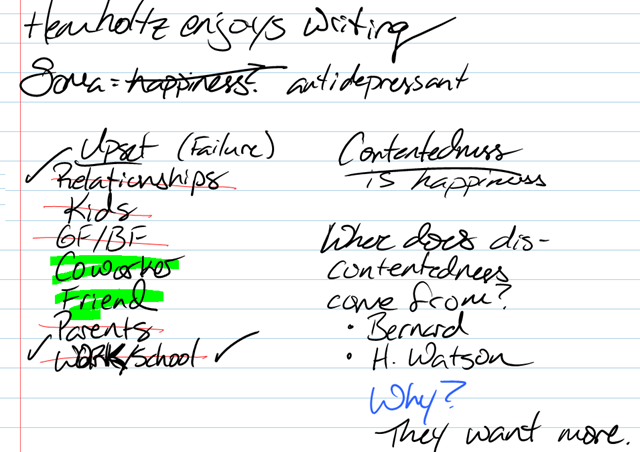 Hemholtz enjoys writing
Soma = happiness? antidepressant
Upset (Failure)
Relationships
Kids
GF/BF
Coworker
Friend
Parents
Work/School
Contentedness
is happiness
Where does dis-
contentedness
come from?
• Bernard
• H. Watson
Why?
They want more.